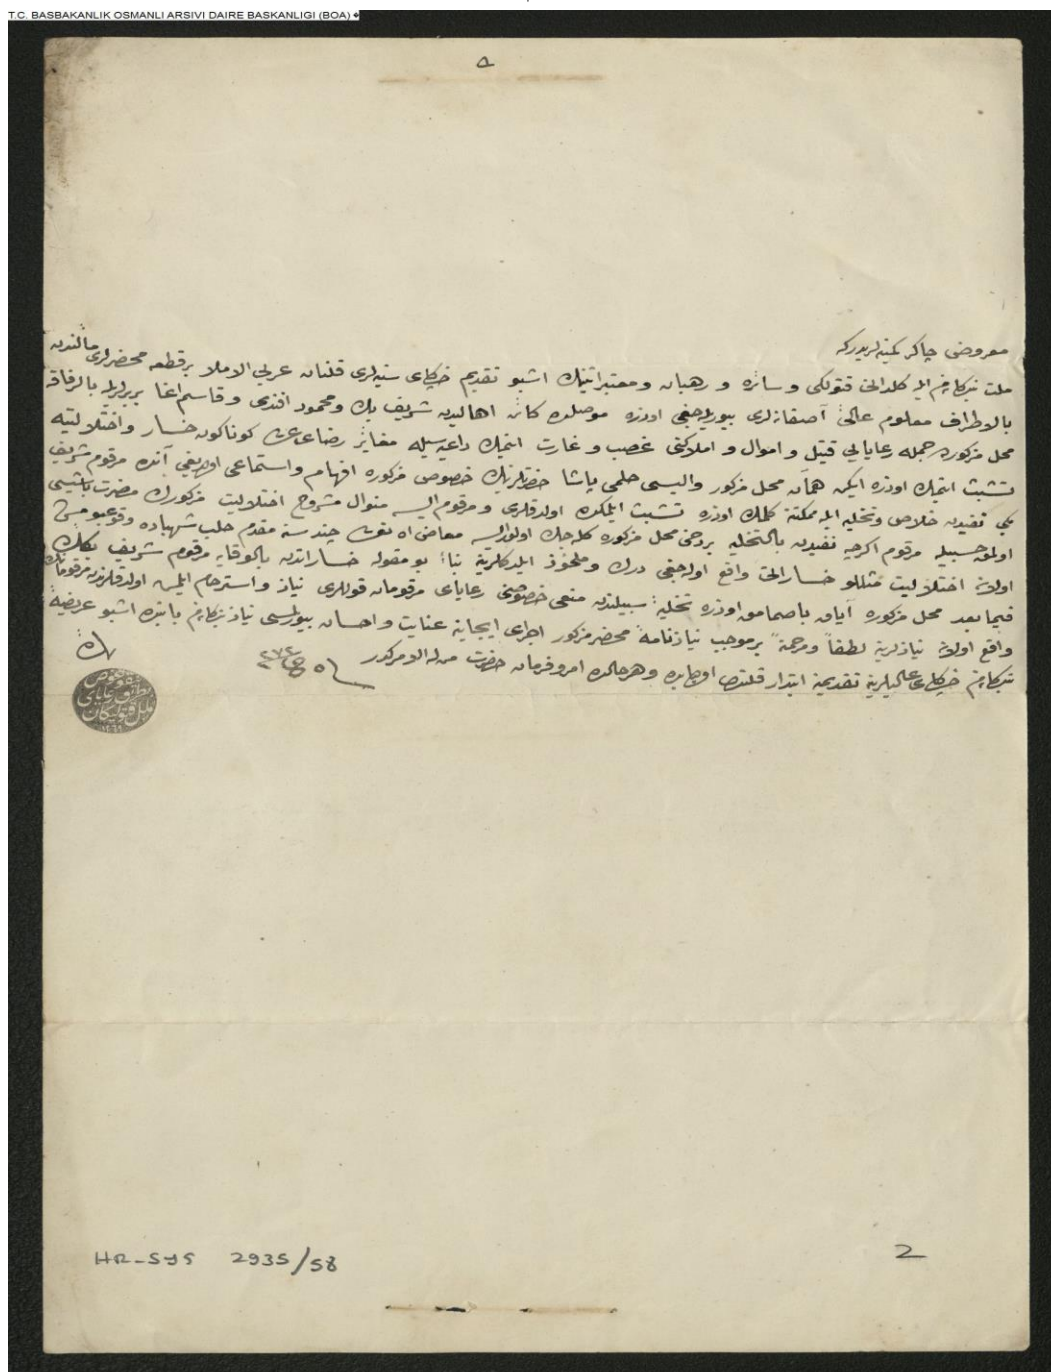 T.C. BASBAKANLIK OSMANLI ARSIVI DAIRE BASKANLIGI (BOA)
معروض چاكر كمینه لریدر كه
ملت بنكانم ایله كلدانی قتولكی وسائره و رهبان ومعتبراتینك اشبو تقدیم خاكپای سنیه لری قلنان عربی الاملا بر قطعه محضرلری مآلندن
بالاطراف معلوم عالئ آصفانه لری بیوریله جغی اوزره موصلده كائن اهالیدن شریف بك ومحمود افندی وقاسم اغا بربرلریله بالرفاقه
محل مذكورده جمله رعایایی قتل و اموال و املاكنی غصب و غارت ایتمك داعیه سیله مغایر رضای كوناكون خسار واختلالیته
تشبث ایتمك اوزره ایكن همان محل مذكور والیسی حلمی پاشا حضرتلرینك خصوص مذكوره افهام واستماعی اولدیغی آنده مرقوم شریف
بكی نفیدن خلاص وتخلیه ایله ممكنه كلمك اوزره تشبث ایلمكده اولدقلری و مرقوم ایسه منوال مشروح اختلالیت مذكورك مضرت باعثیسی
اولمق حسبیله مرقوم اكرچه نفیدن بالتخلیه بر دخی محل مذكوره كله جك اولور ایسه معاذ الله چند سنه مقدم حلب شهباده وقوعبولمش
اولان اختلالیت مثللو خسارالتی واقع اوله جغی درك وملحوظ ایلدكلرینه بناءً بو مقوله خساراتدن بالوقایه مرقوم شریف بكك
فیما بعد محل مذكوره ایاق باصمامق اوزره تخلیهٔ سبیلندن منعی خصوصنی رعایای مرقومان قوللری نیاز و استرحام ایلمش اولدقلرندن مرقومانك
واقع اولان نیازلرینه لطفاً ومرحمةً بر موجب نیازنامهٔ محضر مذكور اجرای ایجابنه عنایت و احسان بیورلمسی نیاز بنكانم بابنده اشبو عریضهٔ
بنكانم خاكپای عالیلرینه تقدیمنه ابتدار قلندی اولبابده وهر حالده امر وفرمان حضرت من له الامركدر
٢٧٢
بنده
HR-SYS 2935/58
2